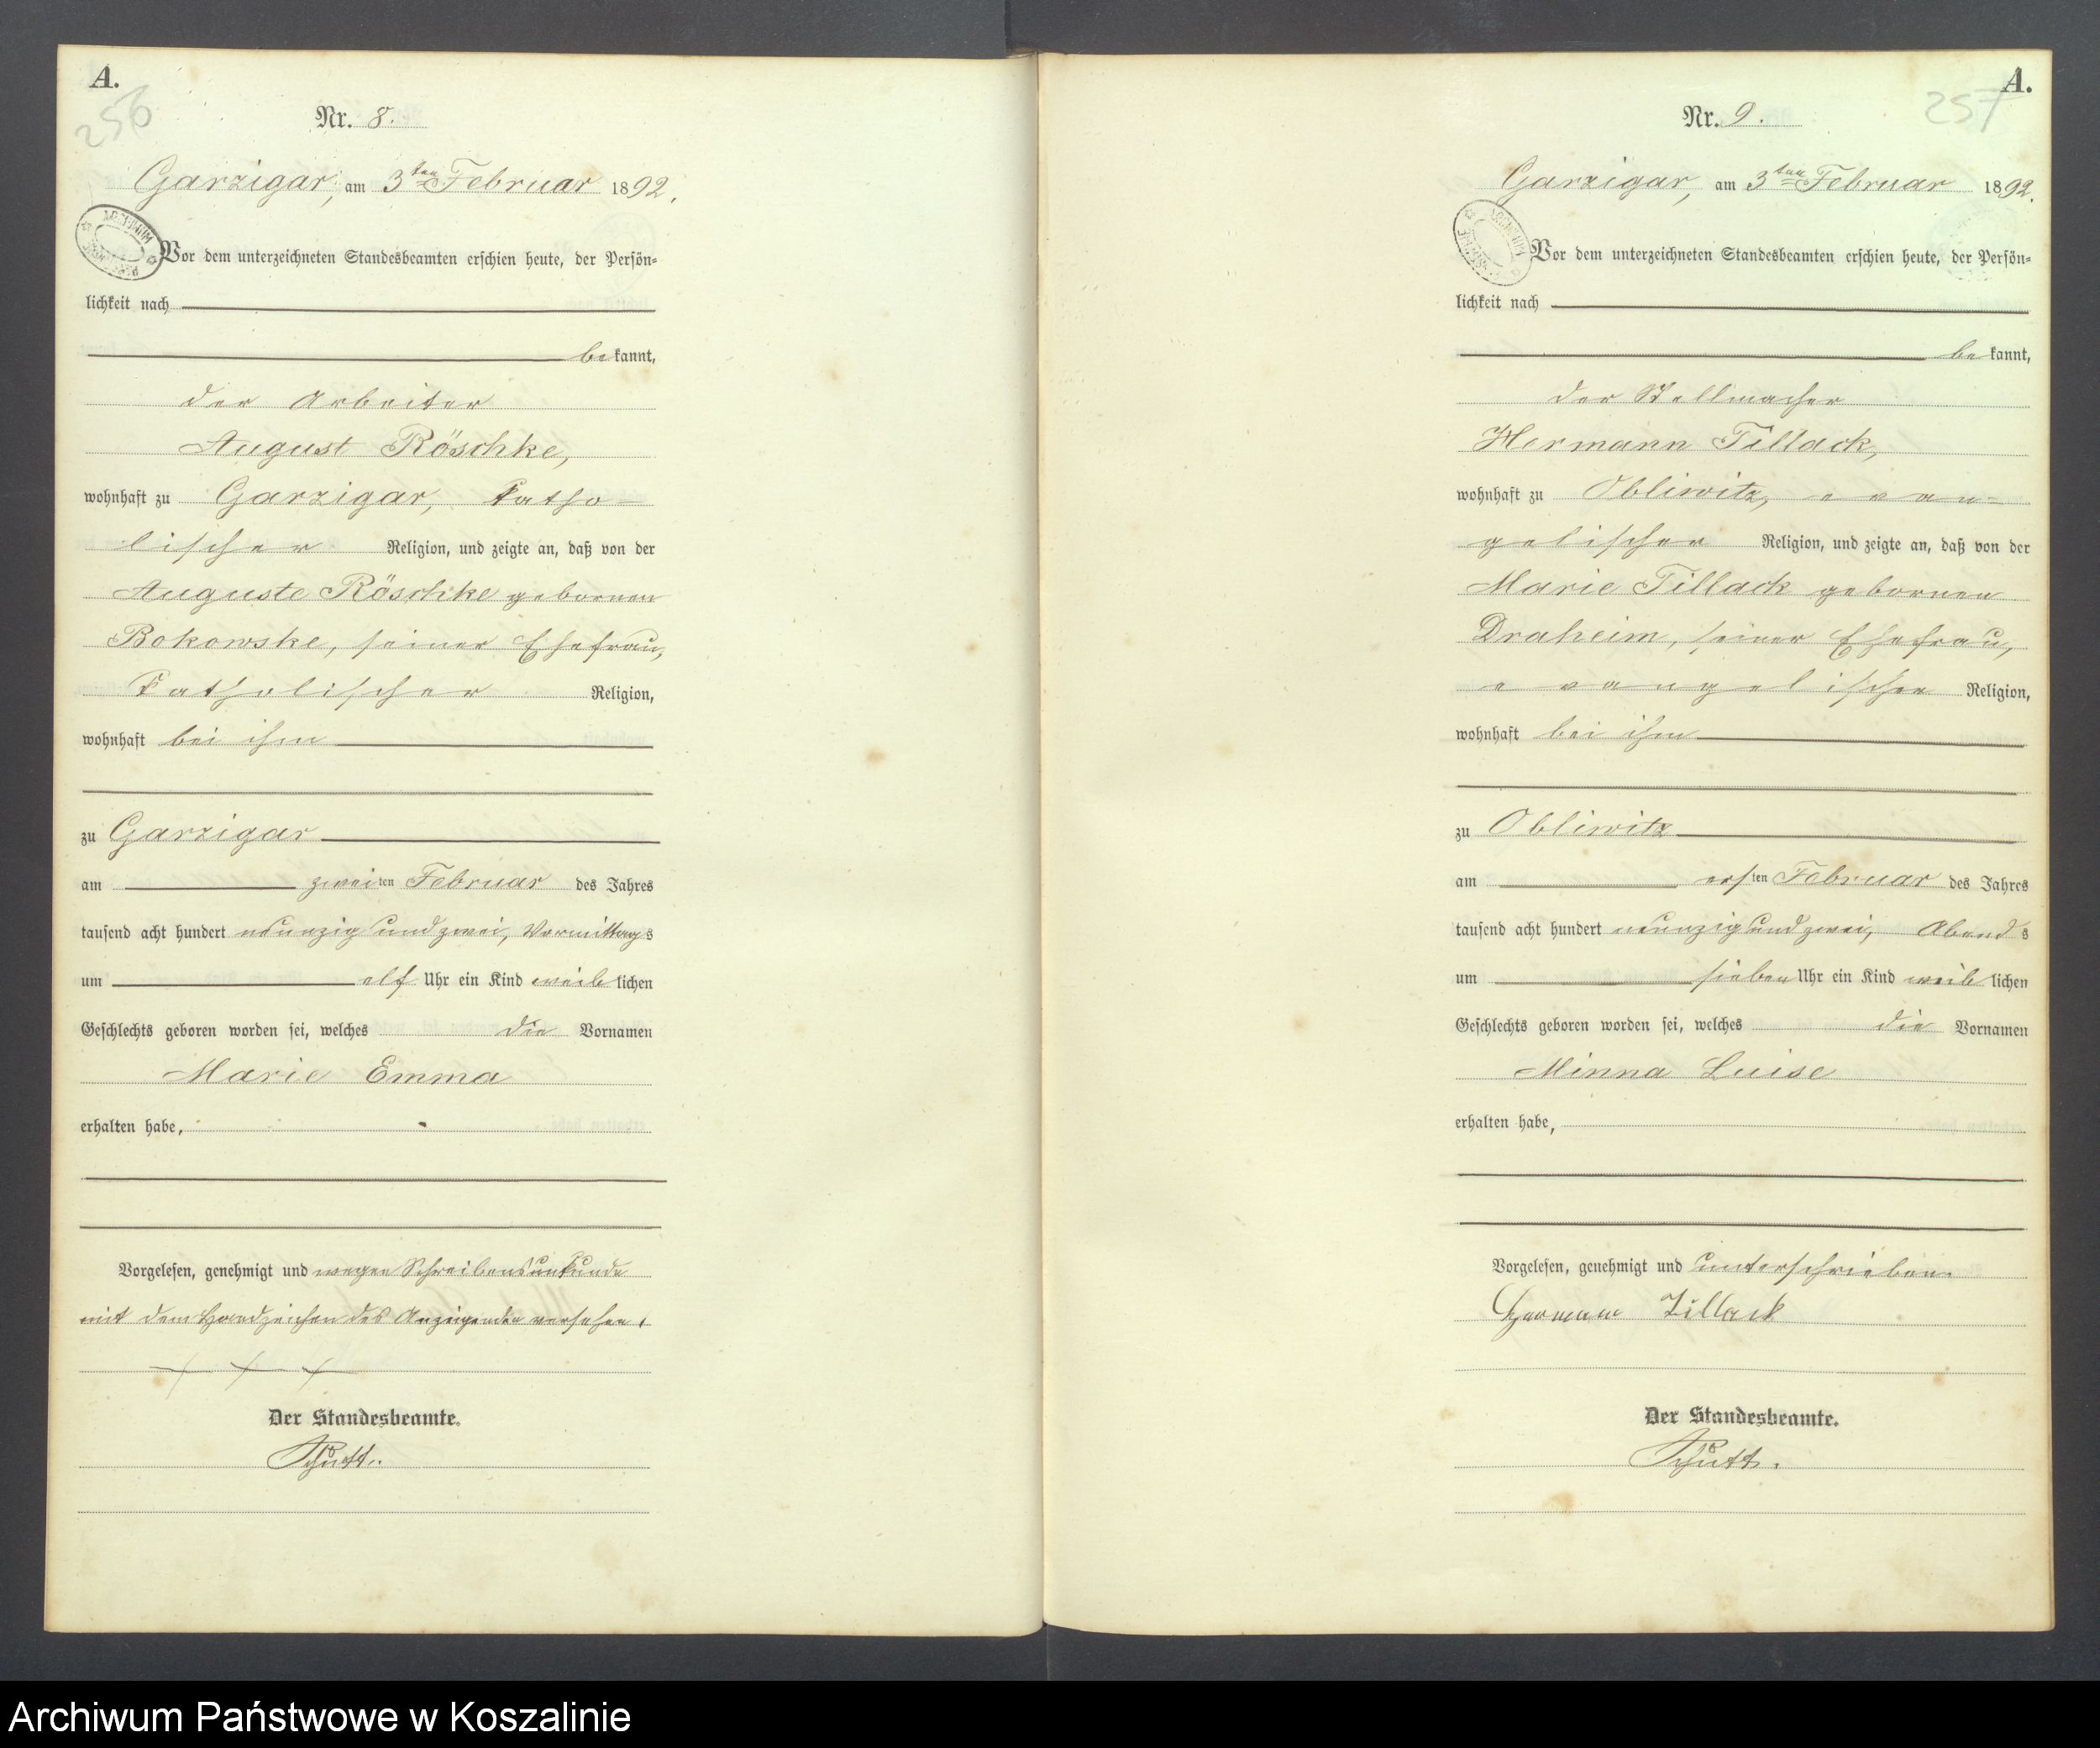 A.
256
Nr. 8.
Garzigar, am 3ten Februar 1892.
ARCHIWUM
Vor dem unterzeichneten Standesbeamten erschien heute, der Persön-
lichkeit nach
bekannt,
der Arbeiter
August Röschke,
wohnhaft zu Garzigar, katho-
lischer Religion, und zeigte an, daß von der
Auguste Röschke gebornen
Bokowske, seiner Ehefrau,
katholischer Religion,
wohnhaft bei ihm
zu Garzigar
am zweiten Februar des Jahres
tausend acht hundert neunzig und zwei, Vormittags
um elf Uhr ein Kind weiblichen
Geschlechts geboren worden sei, welches die Vornamen
Marie Emma
erhalten habe,
Vorgelesen, genehmigt und wegen Schreibensunkunde
mit dem Handzeichen des Anzeigenden versehen,
+ + +
Der Standesbeamte.
A.
257
Nr. 9.
Garzigar, am 3ten Februar 1892.
ARCHIWUM
Vor dem unterzeichneten Standesbeamten erschien heute, der Persön-
lichkeit nach
bekannt,
der Stellmacher
Hermann Tillack,
wohnhaft zu Obliwitz, evan-
gelischer Religion, und zeigte an, daß von der
Marie Tillack gebornen
Draheim, seiner Ehefrau,
evangelischer Religion,
wohnhaft bei ihm
zu Obliwitz
am ersten Februar des Jahres
tausend acht hundert neunzig und zwei, Abends
um sieben Uhr ein Kind weiblichen
Geschlechts geboren worden sei, welches die Vornamen
Minna Luise
erhalten habe,
Vorgelesen, genehmigt und unterschrieben
Herman Tillack
Der Standesbeamte.
Archiwum Państwowe w Koszalinie